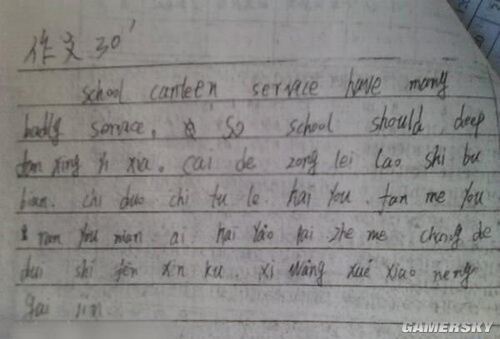 作文 30'
school canteen service have many
badly sorvace. So school should deep
xing yi xia. cai de zong lei lao shi bu
bian. chi duo chi tu le. hai you. fan me you
ran you nian ai hai yao pai zhe me chang de
dui shi jen xin ku. xi wang xue xiao neng
gai jin
GAMERSKY